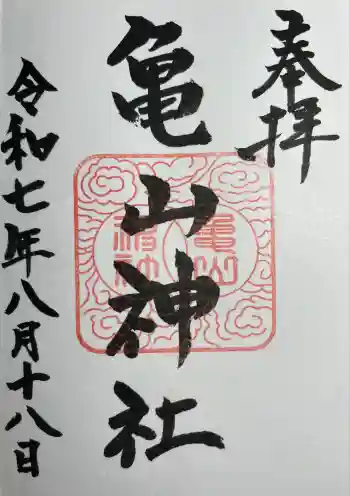 奉拝
亀山神社
亀山
神社
令和七年八月十八日